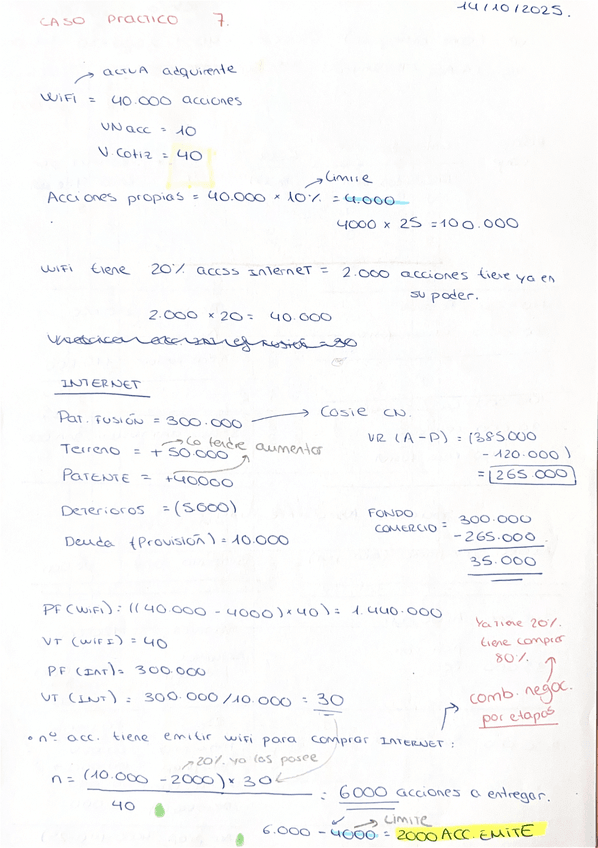 14/10/2025.
CASO PRACTICO 7.
→ ACTUA adquirente
WIFI = 40.000 acciones
VN acc = 10
V. Cotiz = 40
→ Limite
Acciones propias = 40.000 × 10% = 4.000
4000 × 25 = 100.000
WIFI tiene 20% accss INTERNET = 2.000 acciones tiene ya en
su poder.
2.000 × 20 = 40.000
INTERNET
Pat. FUSIÓN = 300.000 → Coste CN.
→ Lo tendre aumentar
Terreno = + 50.000
PATENTE = +40000
Deterioros = (5000)
Deuda (Provisión) = 10.000
VR (A-P) = (385000
- 120.000)
= 265.000
FONDO
COMERCIO = 300.000
- 265.000
35.000
PF (WIFI): ((40.000 - 4000) × 40) = 1.440.000
VT (WIFI) = 40
PF (INT) = 300.000
VT (INT) = 300.000 / 10.000 = 30
Ya tiene 20%
tiene comprar
80%
comb. negoc.
por etapas
• nº acc. tiene emitir wifi para comprar INTERNET :
→ 20% ya las posee
n = (10.000 - 2000) × 30
40
= 6000 acciones a entregar.
→ Limite
6.000 - 4000 = 2000 ACC. EMITE